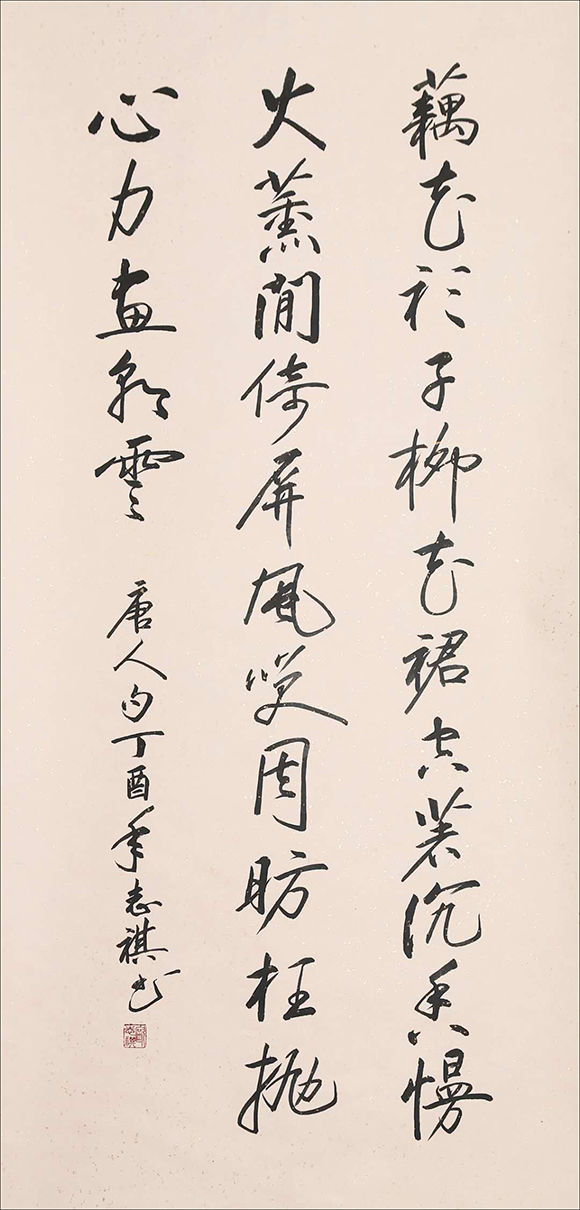 藕花衫子柳花裙空著沉香慢
火薰閒倚屏風咲周昉枉抛
心力畫朝雲
唐人句丁酉年志祺书